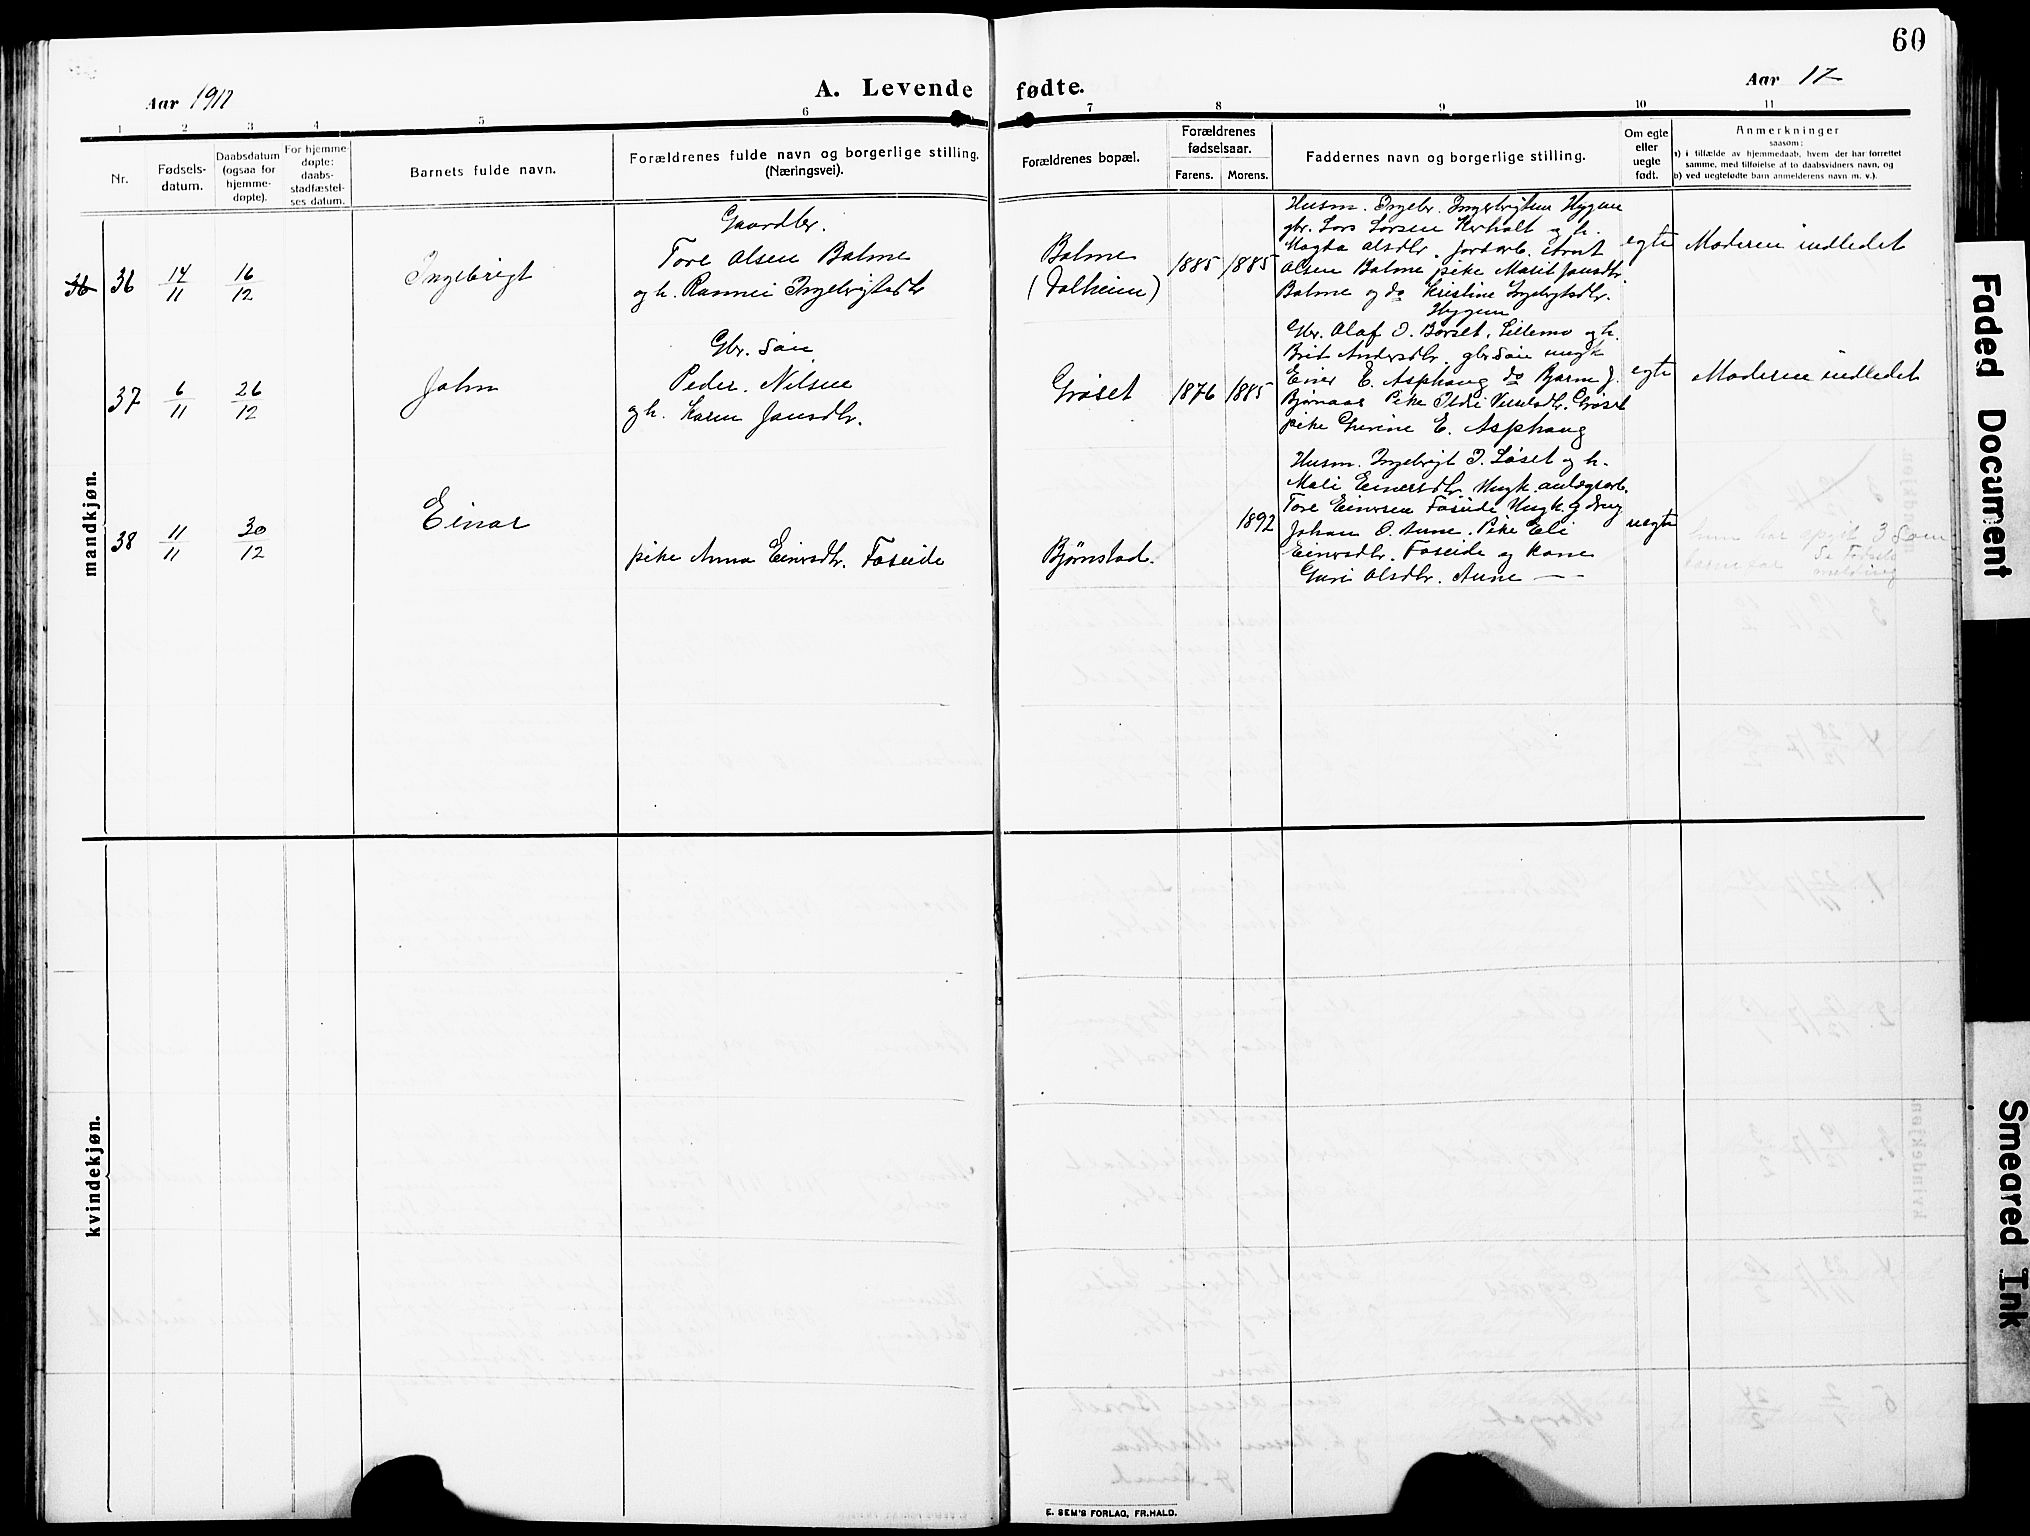 60
Aar 1917
A. Levende fødte.
Aar 17
1 2 3 4 5 6 7 8 9 10 11
Nr.
Fødsels-
datum.
Daabsdatum
(ogsaa for
hjemme-
døpte).
For hjemme-
døpte:
daabs-
stadfæstel-
ses datum.
Barnets fulde navn.
Forældrenes fulde navn og borgerlige stilling.
(Næringsvei).
Forældrenes bopæl.
Forældrenes
fødselsaar.
Farens. Morens.
Faddernes navn og borgerlige stilling.
Om egte
eller
uegte
født.
Anmerkninger
saasom:
a) i tilfælde av hjemmedaab, hvem der har forrettet
samme, med tilføielse af to daabsvidners navn, og
b) ved uegtefødte barn anmelderens navn m. v.).
mandkjøn.
36 36 14/11 16/12
Ingebrigt
Gaardbr.
Tore Olsen Bolme
og h. Rannei Ingebrigtsdtr
Bolme
(Dalheim)
1885 1885
Husm. Ingebr. Ingebrigtsen Hyggen
gbr. Lars Larsen og h.
Magda Olsdtr. Jordarb. Arnt
Olsen Bolme pike Marit Jansdtr.
Bolme og do Kristine Ingebrigtsdtr.
Hyggen
egte
Moderen indledet
37 6/11 26/12
John
Gbr. Søn
Peder Nilsen
og h. Karen Jansdtr.
Grøset
1876 1885
Gbr. Olaf O. Børset, Lillemo og h.
Brit Andersdtr. gbr søn ungk
Einer E. Asphaug do Bjarne J.
Bjørnaas Pike Ildri Nielsdtr. Grøset
pike Gurine E. Asphaug
egte
Moderen indledet
38 11/11 30/12
Einar
pike Anna Einersdtr. Foseide
Bjørnstad.
1892
Husm. Ingebrigt I. Løset og h.
Mali Einersdtr. Ungk. anlægsarb.
Tore Einersen Foseide Ungk. g.dreng
Johan O. Aune. Pike Eli
Einersdtr. Foseide og kone
Guri Olsdtr. Aune
uegte
hun har 3 som
Se Fødsels
melding
kvindekjøn.
E. SEM'S FORLAG, FR.HALD.
Faded Document
Smeared Ink